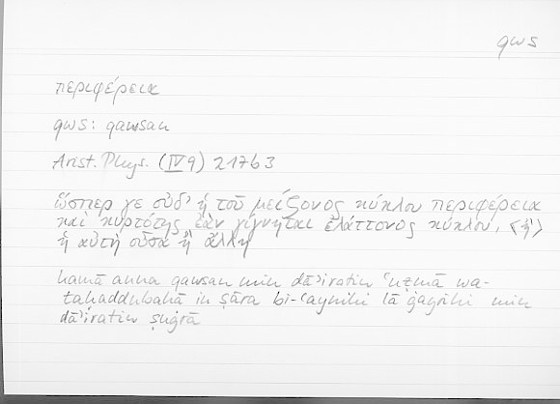 qws
περιφέρεια
qws: qawsan
Arist. Phys. (IV 9) 217b3
ὥσπερ γε οὐδ' ἡ τοῦ μείζονος κύκλου περιφέρεια
καὶ κυρτότης ἐὰν γίγνηται ἐλάττονος κύκλου, <ἢ>
ἡ αὐτὴ οὖσα ἢ ἄλλη
kamā anna qawsan min dāʾiratin ʿuẓmā wa-
taḥaddubahā in ṣāra bi-ʿaynihi lā ġayrihi min
dāʾiratin ṣuġrā